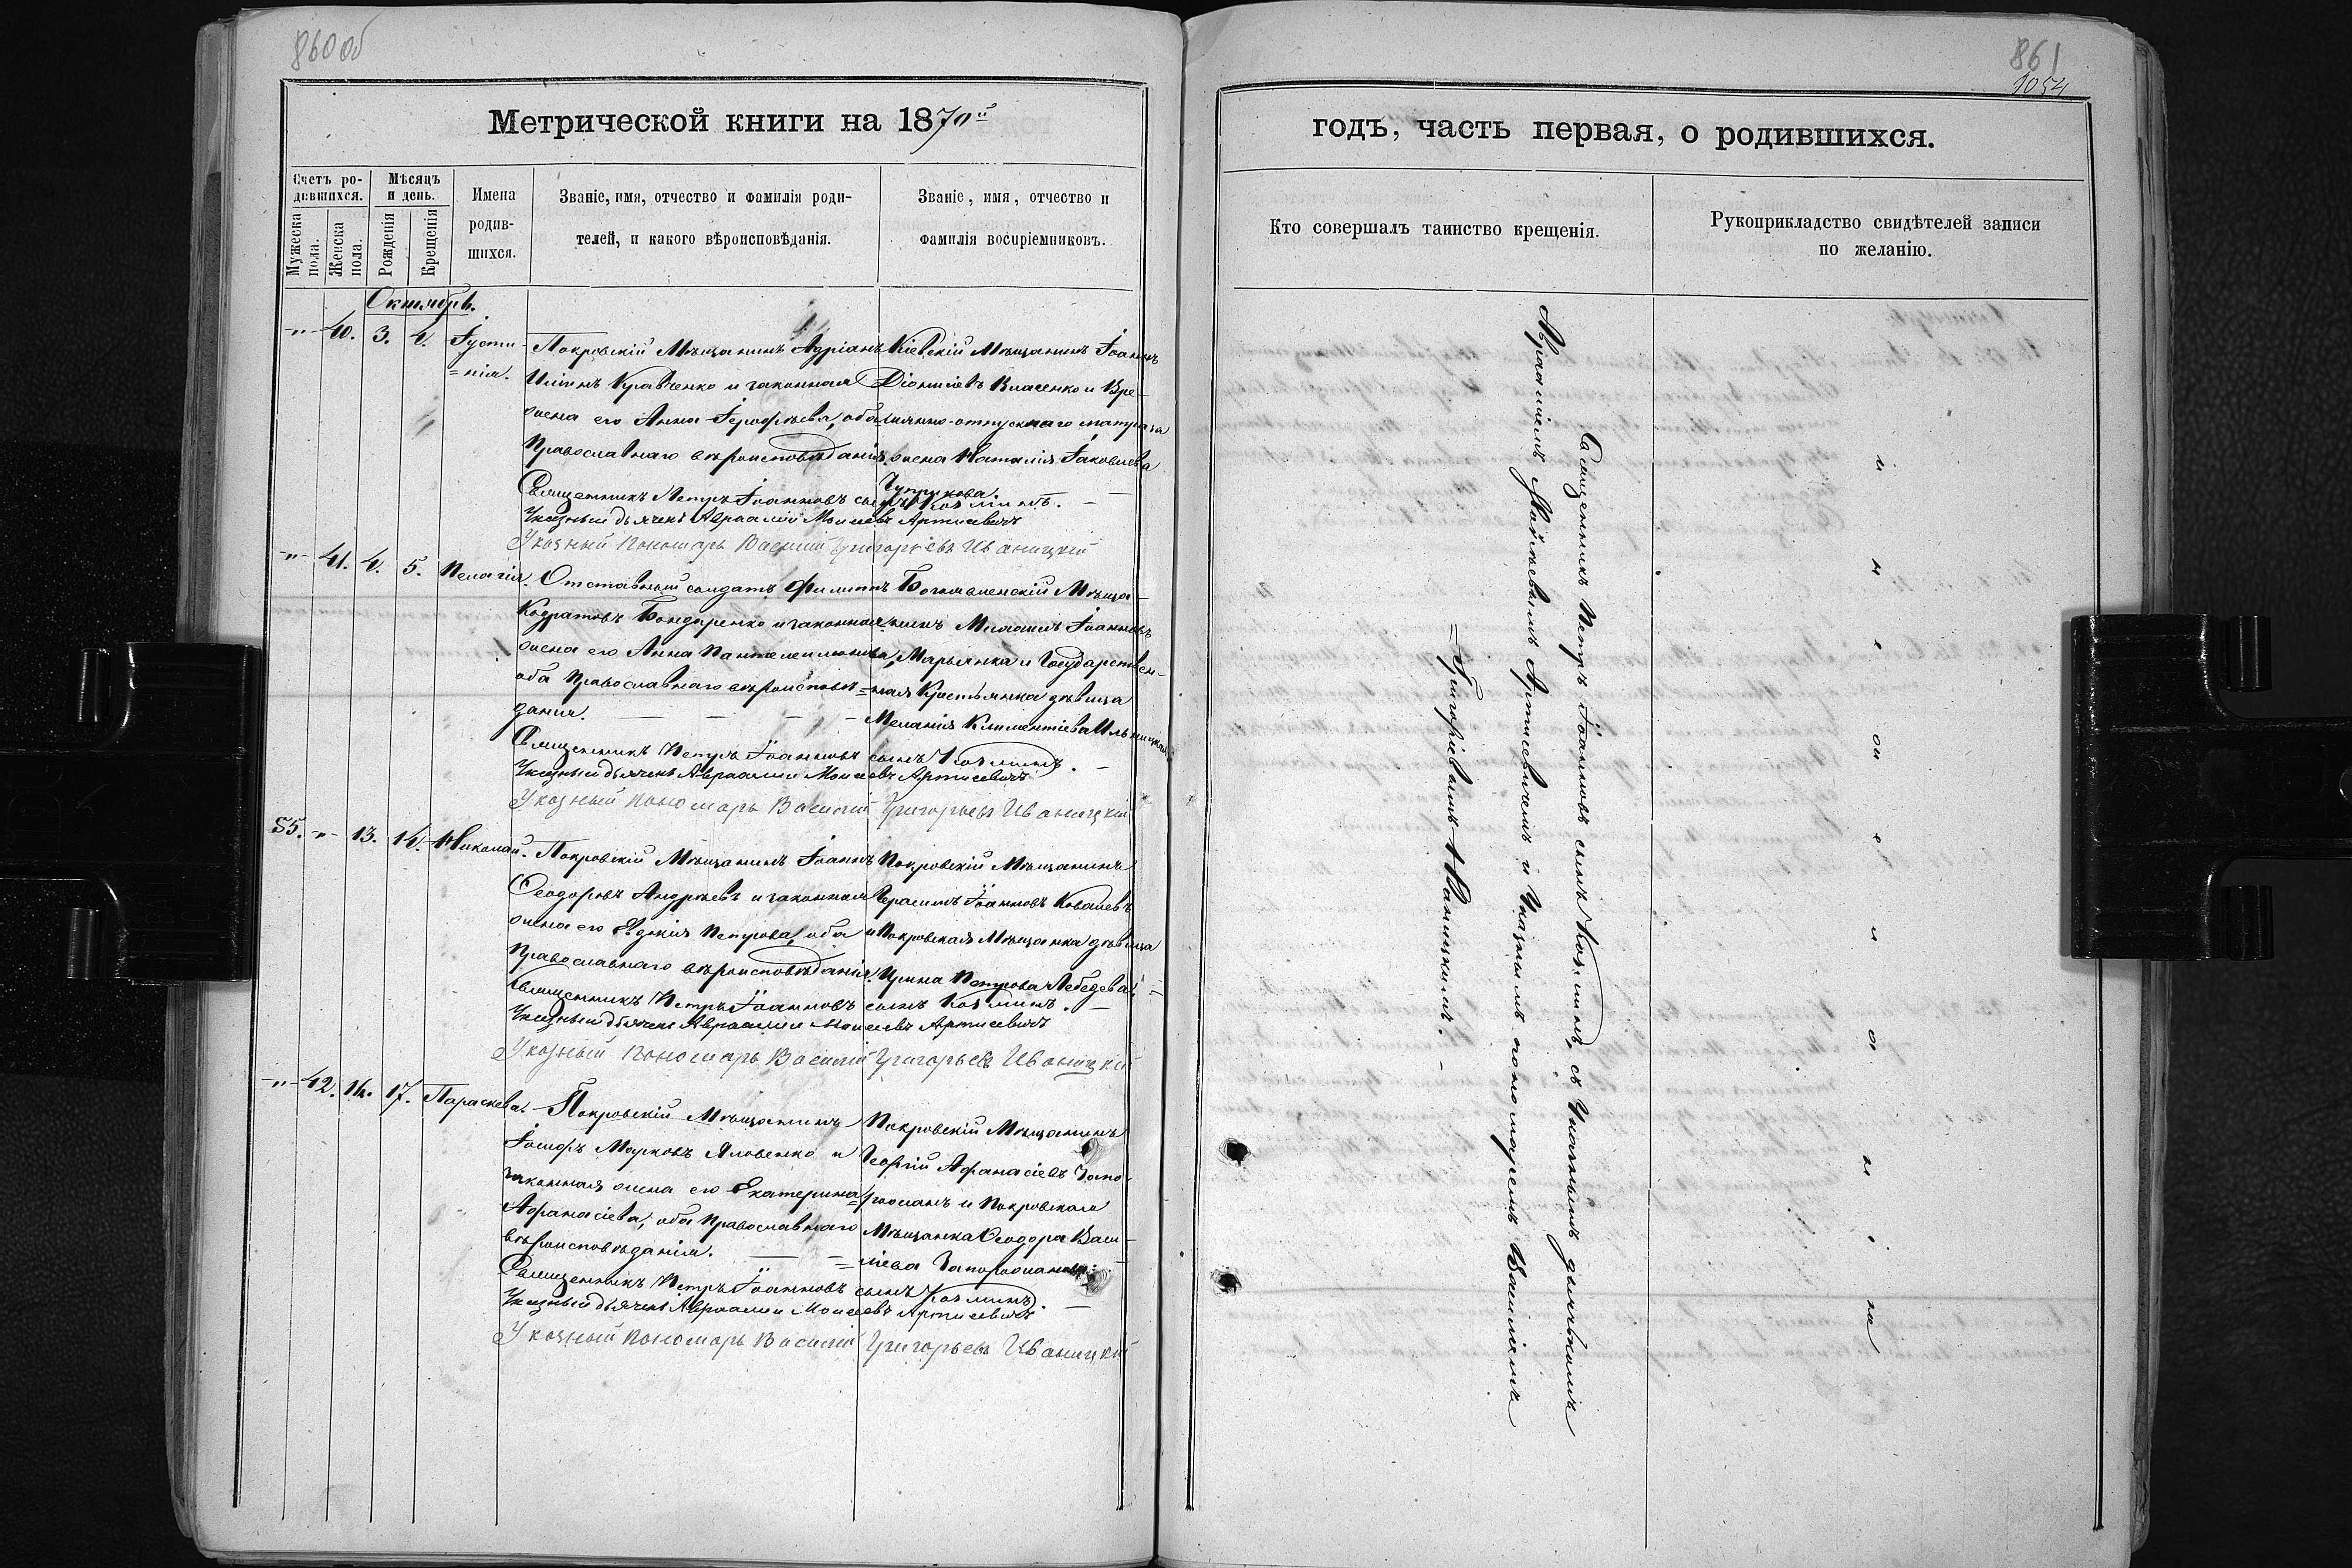 860 об
Метрической книги на 1870й
Счетъ ро-
дившихся.
Мѣсяцъ
и день.
Мужеска
пола.
Женска
пола.
Рожденія
Крещенія
Имена
родив-
шихся.
Званіе, имя, отчество и фамилія роди-
телей, и какого вѣроисповѣданія.
Званіе, имя, отчество и
фамилія воспріемниковъ.
Октябрь.
-"- 40. 3. 4. Іусти-
=нія.
Покровскій Мѣщанинъ Адріанъ
Иліинъ Кравченко и законная
жена его Анна Іерофѣева, оба
Православнаго вѣроисповѣданія.
Кіевскій Мѣщанинъ Іоаннъ
Діонисіевъ Власенко и Вре-
менно-отпускнаго матроза
жена Наталія Іаковлева
Чуприкова.
Священникъ Петръ Іоанновъ сынъ Козминъ.
Указный дьячекъ Авраамій Моисеевъ Артисевичъ
Указный пономарь Василій Григорьевъ Иваницкій
-"- 41. 4. 5. Пелагія.
Отставный солдатъ Филиппъ
Кодратовъ Бондаренко и законная
жена его Анна Пантелеимонова,
оба Православнаго вѣроисповѣ=
данія.
Богоявленскій Мѣща-
нинъ Михаилъ Іоанновъ
Марьянка и Государствен-
ная Крестьянка дѣвица
Меланія Климентіева Ильницкая.
Священникъ Петръ Іоанновъ сынъ Козминъ.
Указный дьячекъ Авраамій Моисеевъ Артисевичъ
Указный пономарь Василій Григорьевъ Иваницкій
55. -"- 13. 14. Николай.
Покровскій Мѣщанинъ Іоаннъ
Ѳеодоровъ Андреевъ и законная
жена его Евдокія Петрова, оба
Православнаго вѣроисповѣданія.
Покровскій Мѣщанинъ
Герасимъ Іоанновъ Ковалевъ
и Покровская Мѣщанка дѣвица
Ирина Петрова Лебедева.
Священникъ Петръ Іоанновъ сынъ Козминъ.
Указный дьячекъ Авраамій Моисеевъ Артисевичъ
Указный пономарь Василій Григорьевъ Иваницкій
-"- 42. 14. 17. Параскева.
Покровскій Мѣщанинъ
Іосифъ Марковъ Яловенко и
законная жена его Екатерина
Афанасіева, оба Православнаго
вѣроисповѣданія.
Покровскій Мѣщанинъ
Георгій Афанасіевъ Запо-
рожанъ и Покровская
Мѣщанка Ѳеодора Васи-
ліева Запорожанъ.
Священникъ Петръ Іоанновъ сынъ Козминъ.
Указный дьячекъ Авраамій Моисеевъ Артисевичъ
Указный пономарь Василій Григорьевъ Иваницкій
861
1054
годъ, часть первая, о родившихся.
Кто совершалъ таинство крещенія.
Рукоприкладство свидѣтелей записи
по желанію.
Священникъ Петръ Іоанновъ сынъ Козминъ, съ Указнымъ дьячкомъ
Авраміемъ Моисеевымъ Артисевичемъ и Указнымъ пономаремъ Василіемъ
=Григорьевымъ Иваницкимъ.